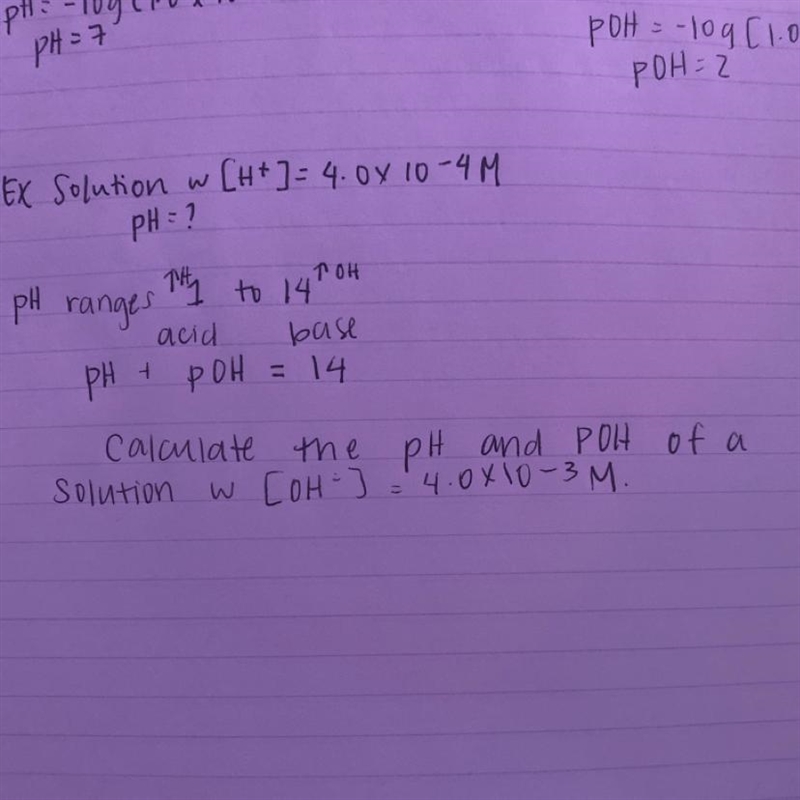 pH = -log [1.0 x 10
pH = 7
pOH = -log [1.0
pOH = 2
Ex Solution w [H+] = 4.0 x 10 -4 M
pH = ?
pH ranges ↑H 1 to 14 ↑OH
acid base
pH + pOH = 14
Calculate the pH and POH of a
Solution w [OH-] = 4.0 x 10 -3 M.